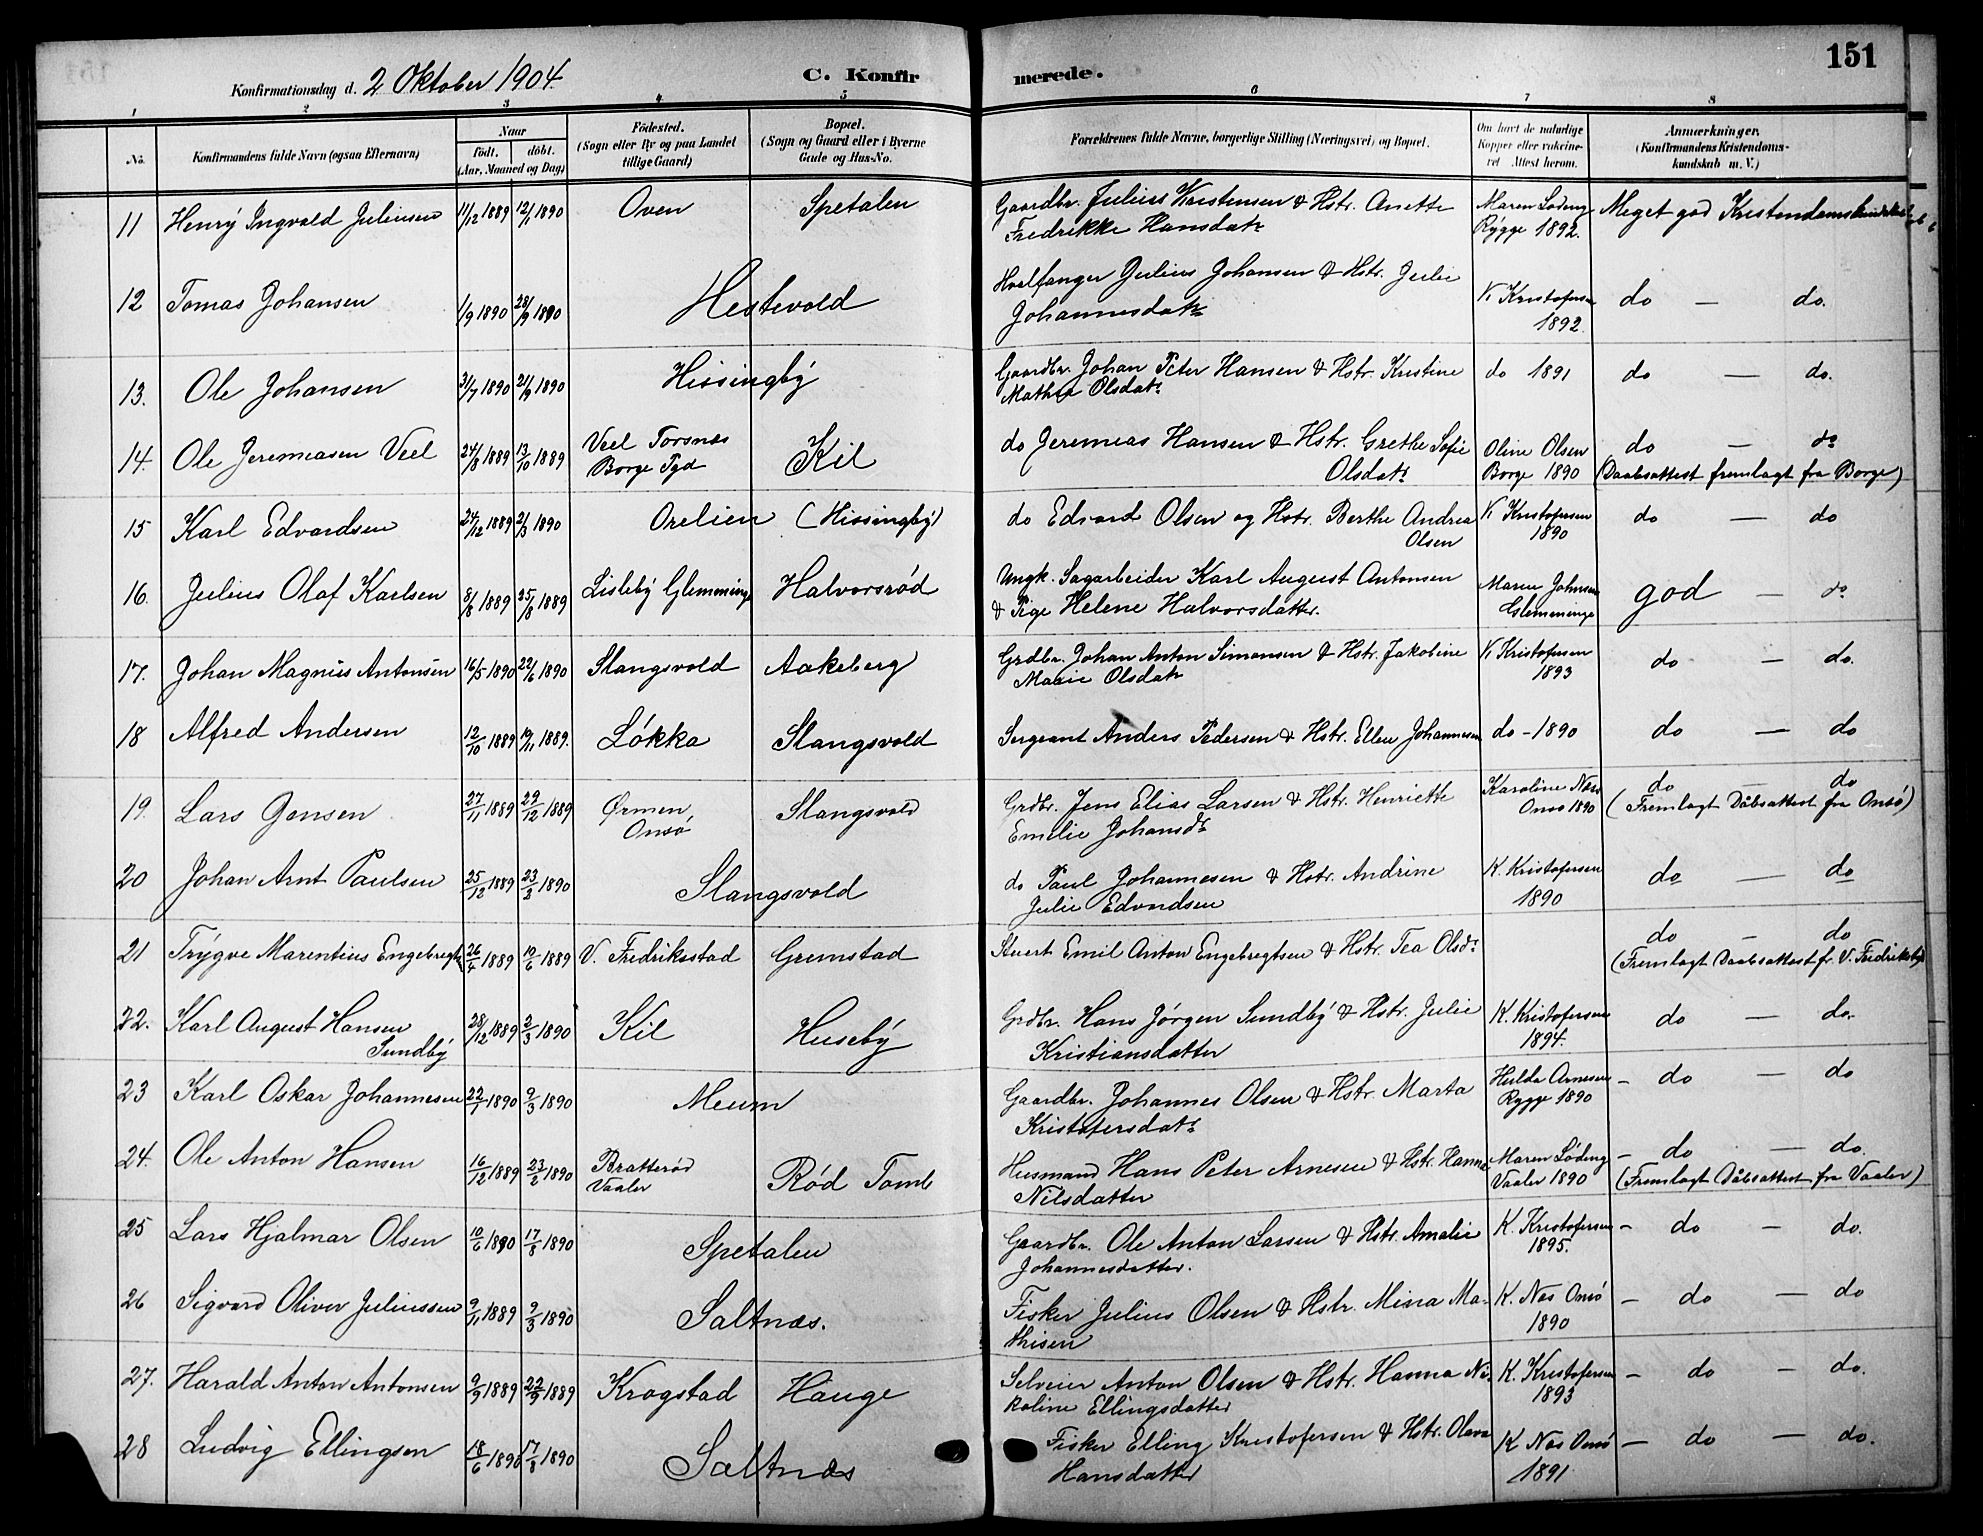 151
Konfirmationsdag d. 2 Oktober 1904.
C. Konfirmerede.
1 2 3 4 5 6 7 8
No.
Konfirmandens fulde Navn (ogsaa Efternavn)
Naar
födt. döbt.
(Aar, Maaned og Dag)
Födested.
(Sogn eller By og paa Landet
tillige Gaard)
Bopæl.
(Sogn og Gaard eller i Byerne
Gade og Hus-No.
Forældrenes fulde Navne, borgerlige Stilling (Næringsvei) og Bopæl.
Om havt de naturlige
Kopper eller vakcine-
ret Attest herom.
Anmærkninger.
(Konfirmandens Kristendoms-
kundskab m. V.)
11 Henry Ingvald Juliusen 11/12 1889 12/1 1890 Oven Spetalen Gaardbr. Julius Karstensen & Hstr. Anette Maren Löding Meget god Kristendomskundskab
Fredrikke Hansdatr Rygge 1892.
12 Tomas Johansen 1/9 1890 28/9 1890 Hestevold Hvalfanger Julius Johansen & Hstr. Julie K Kristofersen do — do.
Johannesdatr 1892.
13. Ole Johansen 31/7 1890 21/9 1890 Hissingby Gaardbr. Johan Peter Hansen & Hstr. Kristine do 1891 do — do.
Mathea Olsdatr
14. Ole Jeremiasen Veel 24/8 1889 13/10 1889 Veel Torsnæs Kil do Jeremias Hansen & Hstr. Grethe Sofie Oline Olsen do — do
Borge Pgd Olsdatr Borge 1890 (Daabsattest fremlagt fra Borge)
15 Karl Edvardsen 24/12 1889 2/3 1890 Orelien (Hissingby) do Edvard Olsen og Hstr. Berthe Andrea K Kristofersen do — do
Olsen 1890
16. Julius Olaf Karlsen 8/8 1889 25/8 1889 Lisleby Glemminge Halvorsrød Ungk. Sagarbeider Karl August Antonsen Maren Johnsen god — do
& Pige Helene Halvorsdatter. Glemminge
17. Johan Magnus Antonsen 16/5 1890 22/6 1890 Slangsvold Aakeberg Grdbr. Johan Anton Simonsen & Hstr. Jakobine K Kristofersen do — do.
Marie Olsdatr 1893
18 Alfred Andersen 12/10 1889 /11 1889. Løkka Slangsvold Sergeant Anders Pedersen & Hstr. Ellen Johannesen do - 1890 do — do
19. Lars Jensen 27/11 1889 29/12 1889 Ørmen Slangsvold Grdbr. Jens Elias Larsen & Hstr. Henriette Karoline Næs do — do
Onsø Emilie Johansdr Onsø 1890 (Fremlagt Dåbsattest fra Onsö)
20 Johan Arnt Paulsen 25/12 1889 23/2 1890 Slangsvold do Paul Johannesen & Hstr. Andrine K. Kristofersen do — do
Julie Edvndsen 1890
21 Trygve Marentius Engebregts 26/4 1889 10/6 1889 V. Fredriksstad Grimstad Stuert Emil Anton Engebregtsen & Hstr. Tea Olsdr do — do
(Fremlagt Daabsattest fr. V. Fredriksstad
22. Karl August Hansen 28/12 1889 2/3 1890 Kil Huseby Grdbr. Hans Jørgen Sundby & Hstr. Julie K. Kristofersen do — do.
Sundby Kristiansdatter 1894.
23 Karl Oskar Johannesen 22/1 1890 9/3 1890 Meum Gaardbr. Johannes Olsen & Hstr. Marta Hulda Arnesen - do — do
Kristofersdatr Rygge 1890
24. Ole Anton Hansen 16/12 1889 23/2 1890 Bratterød Rød Tomb Husmand Hans Peter Arnesen & Hstr. Hanna Maren Löding - do — do.
Vaaler Nilsdatter Vaaler 1890 (Fremlagt Dåbsattest fra Vaaler)
25 Lars Hjalmar Olsen 10/6 1890 17/8 1890 Spetalen Gaardbr. Ole Anton Larsen & Hstr. Amalie K. Kristofersen - do - do.
Johannesdatter. 1895.
26 Sigvard Oliver Juliussen 9/11 1889 9/3 1890 Saltnæs. Fisker Julius Olsen & Hstr. Mina Ma- K. Næs Onsø - do — do
thisen 1890
27. Harald Anton Antonsen 9/9 1889 22/9 1889 Krogstad Hauge Selveier Anton Olsen & Hstr. Hanna Ni- K. Kristofersen - do — do.
koline Ellingsdatter 1893
28 Ludvig Ellingsen 18/6 1890 17/8 1890 Saltnæs Fisker Elling Kristofersen & Hstr. Olava K Næs Onsø - do — do.
Hansdatter 1891